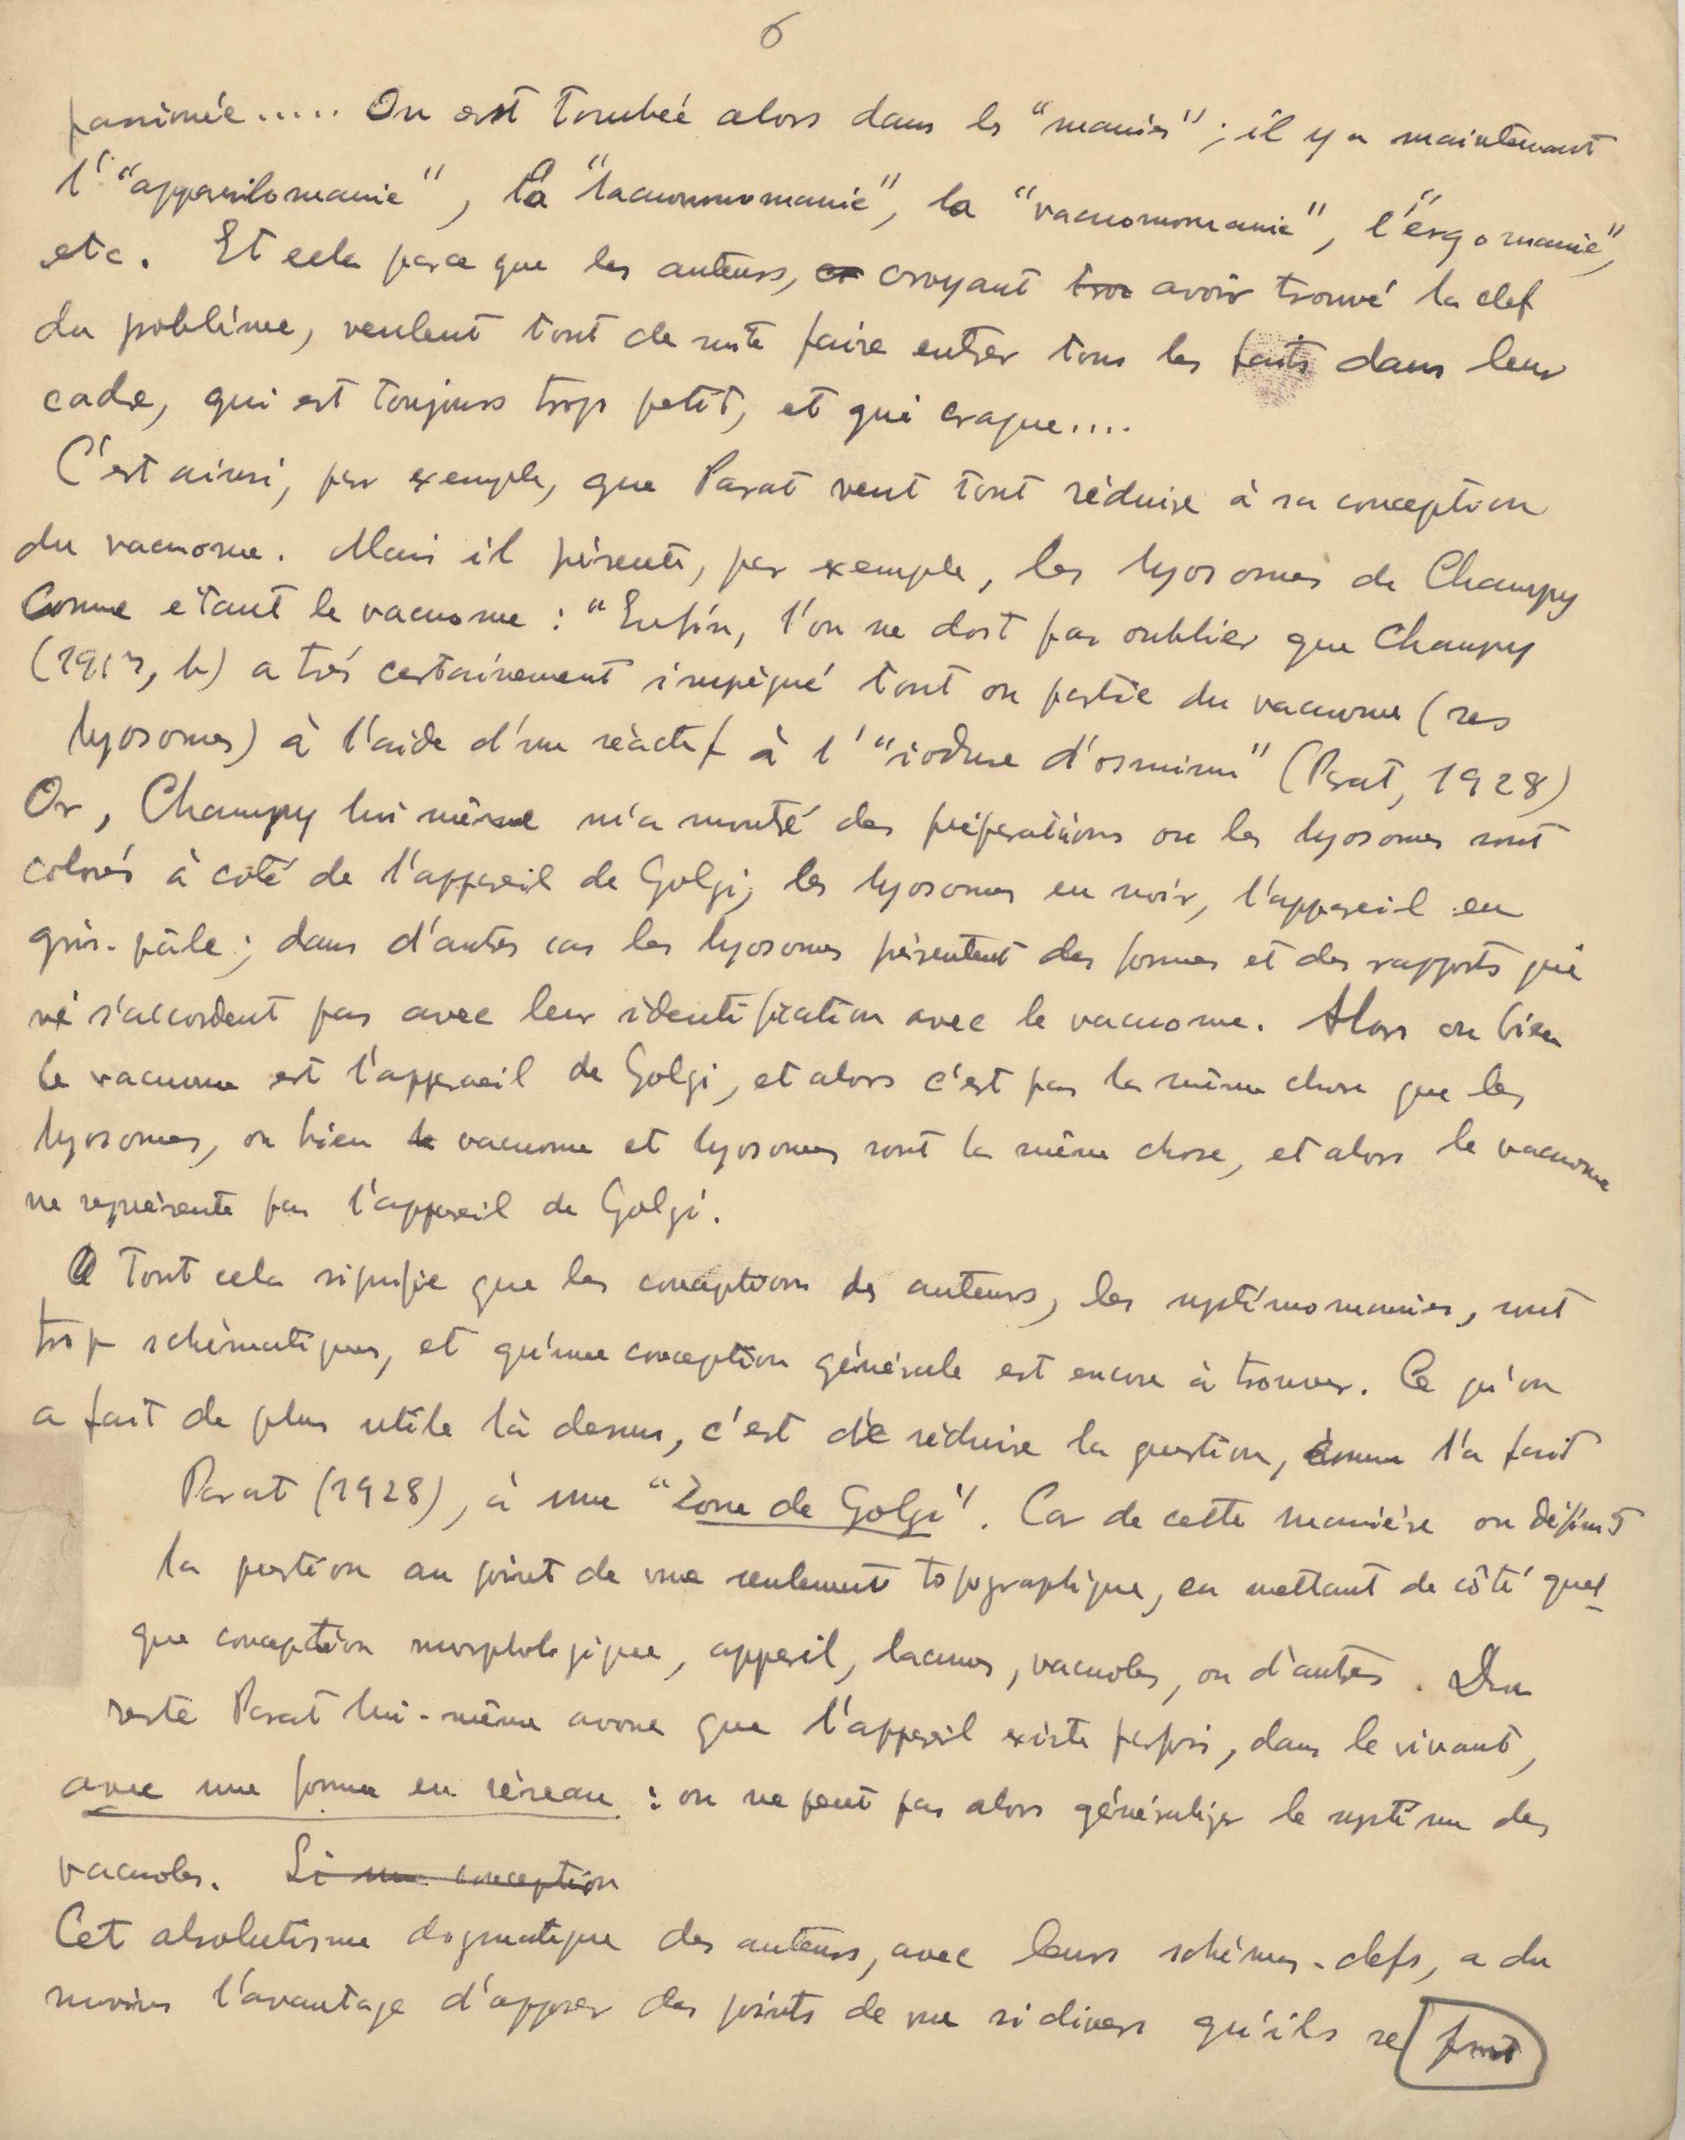 6
passionnée..... On est tombé alors dans les "manies"; il y a maintenant
l'"appareilomanie", la "lacunomomanie", la "vacuomomanie", l'"ergomanie",
etc. Et cela parce que les auteurs, croyant avoir trouvé la clef
du problème, veulent tout de suite faire entrer tous les faits dans leur
cadre, qui est toujours trop petit, et qui craque....
C'est ainsi, par exemple, que Parat veut tout réduire à sa conception
du vacuome. Mais il présente, par exemple, les lyosomes de Champy
Comme etant le vacuome : "Enfin, l'on ne doit pas oublier que Champy
(1913, b) a très certainement imprégné tout ou partie du vacuome (ses
lyosomes) à l'aide d'un réactif à l'"iodure d'osmium" (Parat, 1928)
Or, Champy lui même m'a montré des préparations ou les lyosomes sont
colorés à coté de l'appareil de Golgi; les lyosomes en noir, l'appareil en
gris-pâle; dans d'autres cas les lyosomes présentent des formes et des rapports qui
ne s'accordent pas avec leur identification avec le vacuome. Alors ou bien
le vacuome est l'appareil de Golgi, et alors c'est pas la même chose que les
lyosomes, ou bien vacuome et lyosomes sont la même chose, et alors le vacuome
ne représente pas l'appareil de Golgi.
Tout cela signifie que les conceptions des auteurs, les systémomanies, sont
trop schématiques, et qu'une conception générale est encore à trouver. Ce qu'on
a fait de plus utile là dessus, c'est de réduire la question, comme l'a fait
Parat (1928), à une "Zone de Golgi". Car de cette manière on définit
la question au point de vue seulement topographique, en mettant de côté quel
que conception morphologique, appareil, lacunes, vacuoles, ou d'autres. Du
reste Parat lui-même avoue que l'appareil existe parfois, dans le vivant,
avec une forme en réseau : on ne peut pas alors généraliser le système des
vacuoles. Si une conception
Cet absolutisme dogmatique des auteurs, avec leurs schémas-clefs, a du
moins l'avantage d'opposer des points de vue si divers qu'ils se font